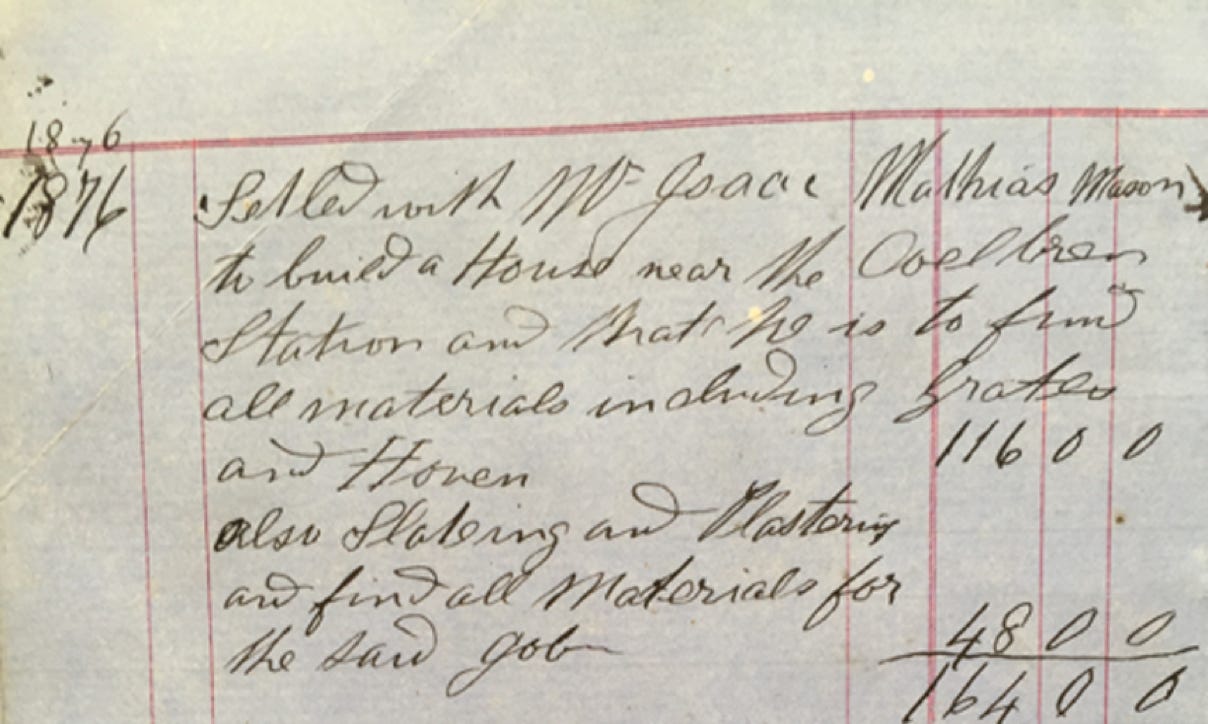 1876
1876 Setled with Mr Isaac Mathias Mason
to build a House near the Coelbren
Station and that he is to find
all materials including Grates
and Hoven 116 0 0
also Slateing and Plastering
and find all Materials for
the said Job 48 0 0
164 0 0